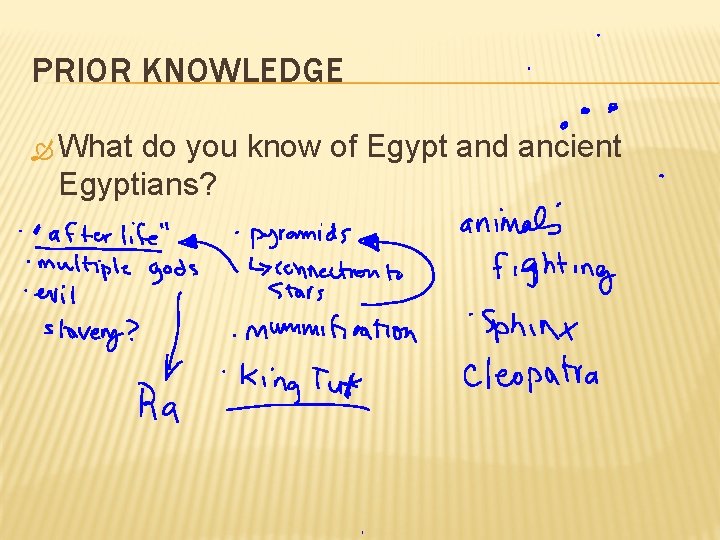 PRIOR KNOWLEDGE
What do you know of Egypt and ancient
Egyptians?
• "after life"
• multiple gods
• evil
slavery?
Ra
• pyramids
↳ connection to
stars
• Mummification
• King Tut
animals
fighting
• Sphinx
Cleopatra